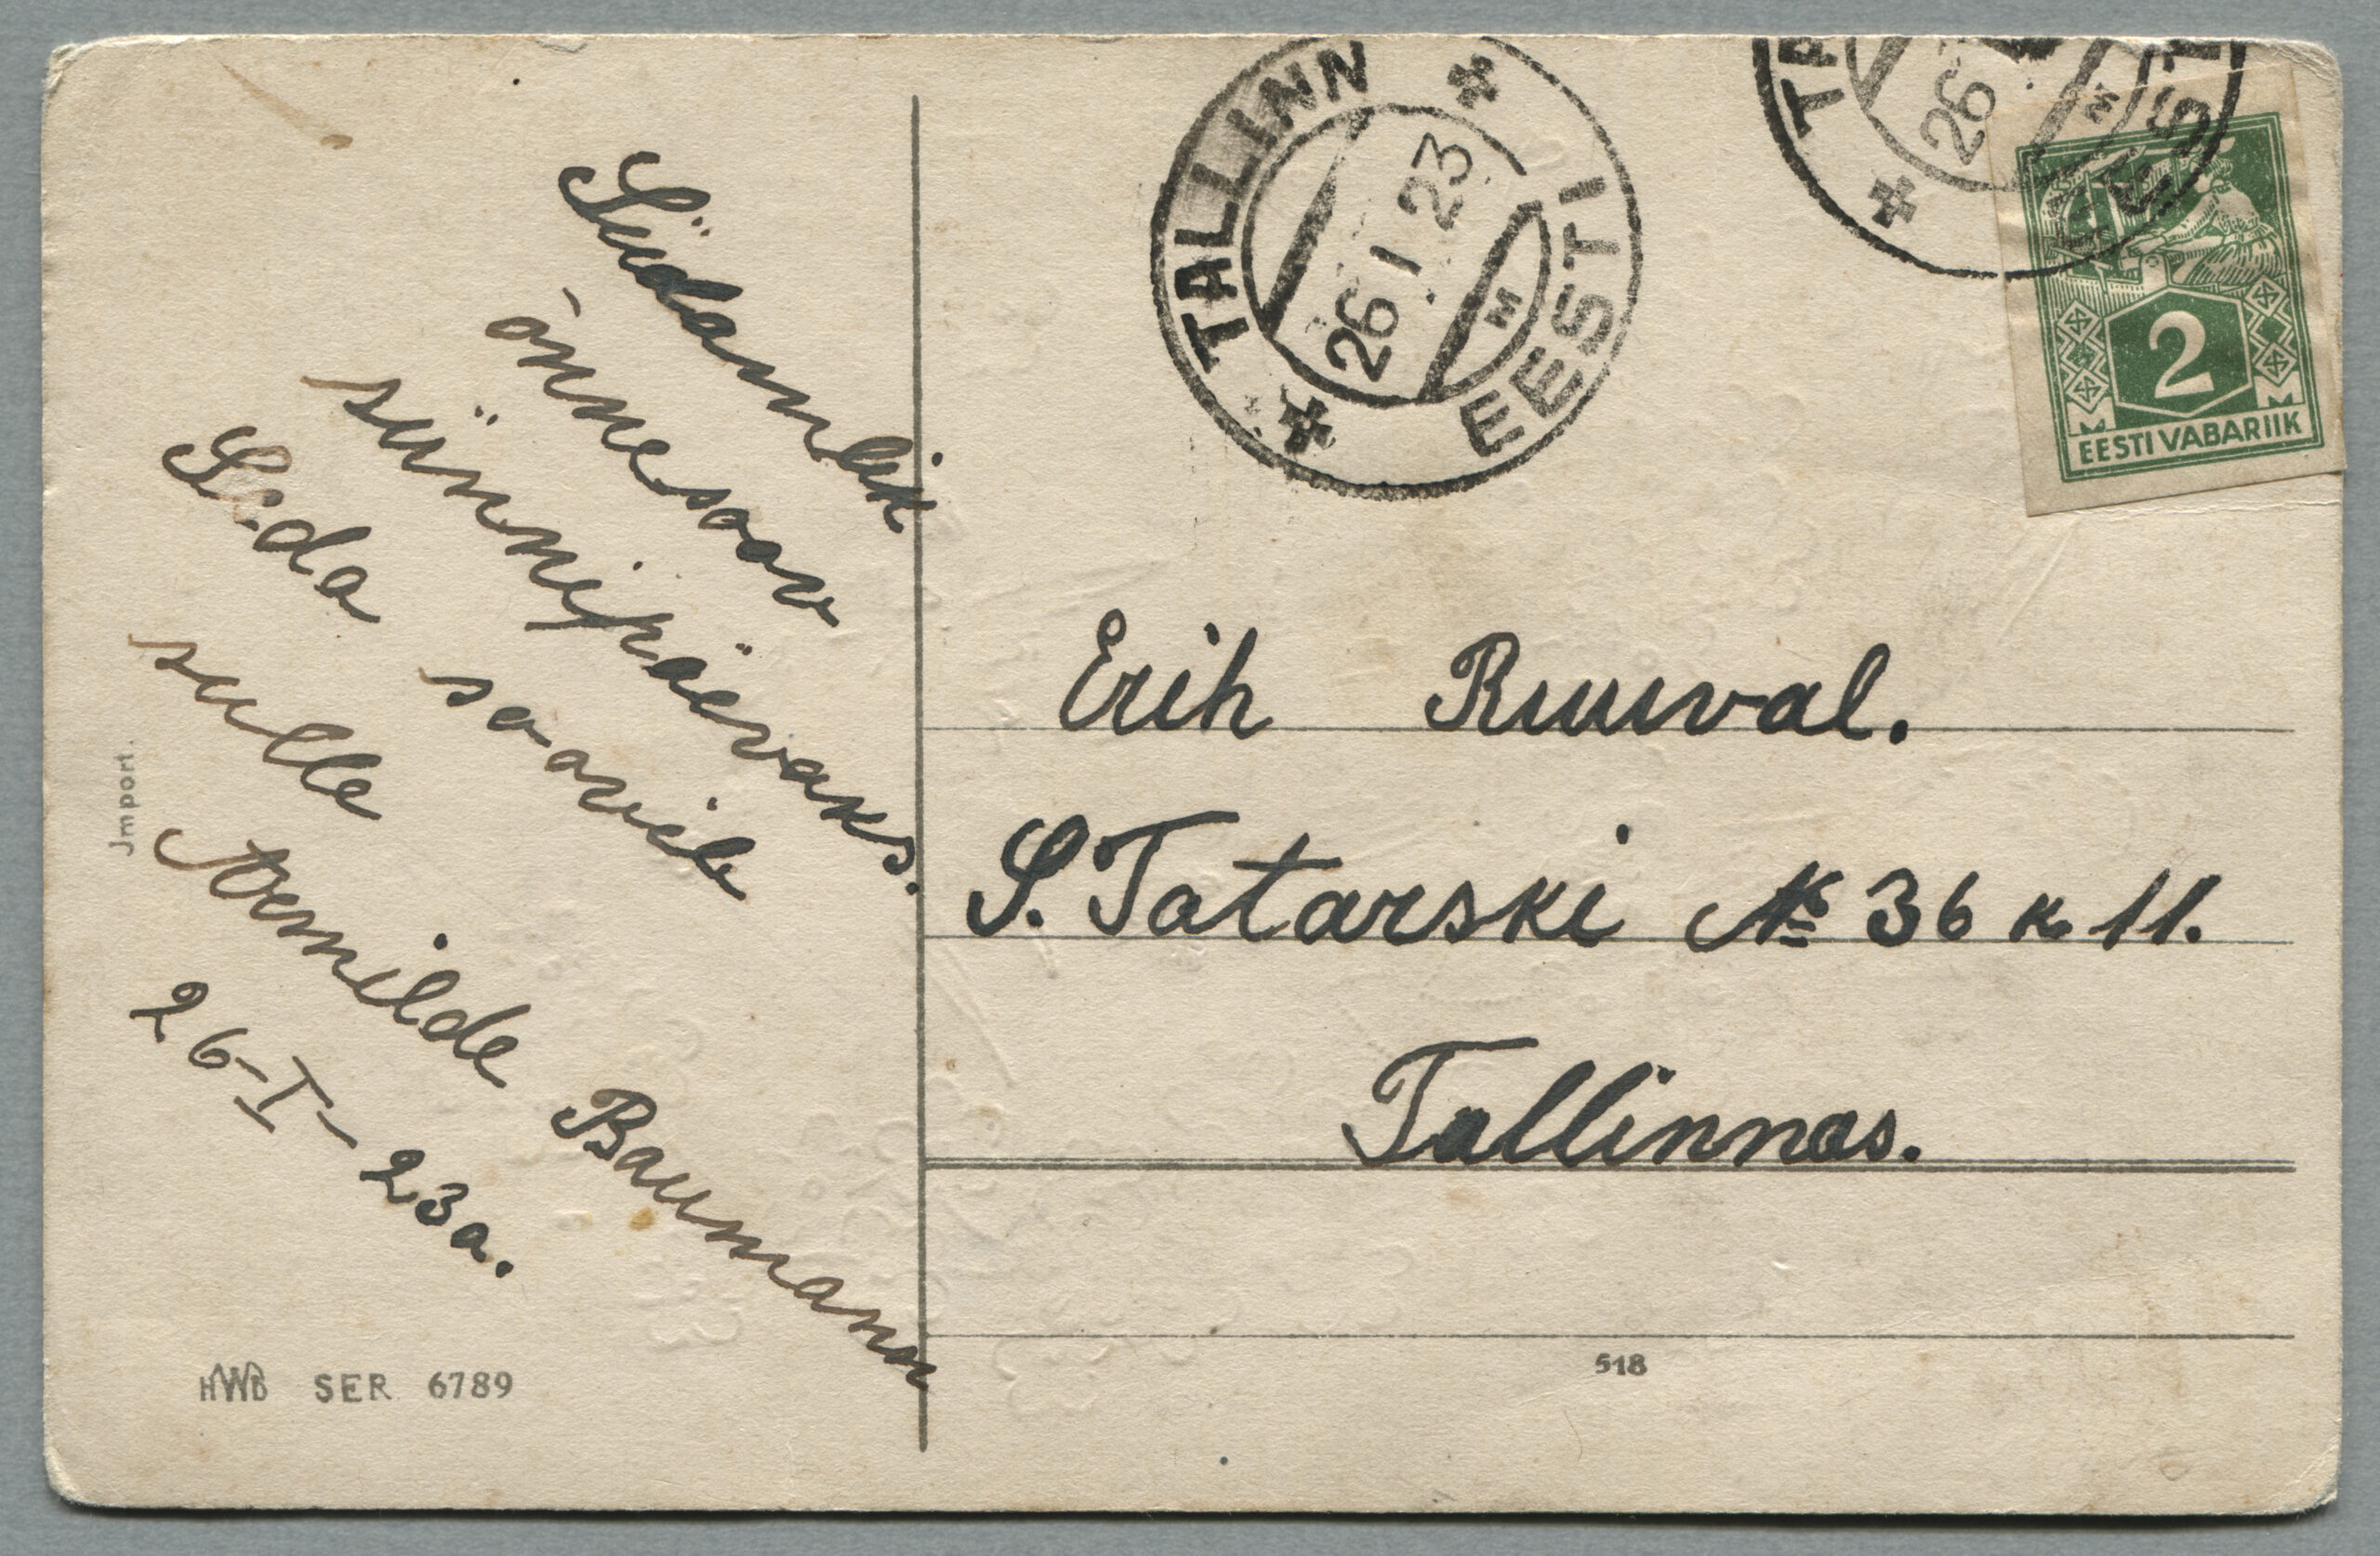 Südamlik
õnnesoov
sünnipäevaks.
Seda soovib
sulle
Baumann
26-I-23a.
Jmport.
HWB SER 6789
TALLINN
26 I 23
M
EESTI
TA
26
M
EESTI
2
EESTI VABARIIK
Erih Ruuval.
S. Tatarski № 36 k 11.
Tallinnas.
518